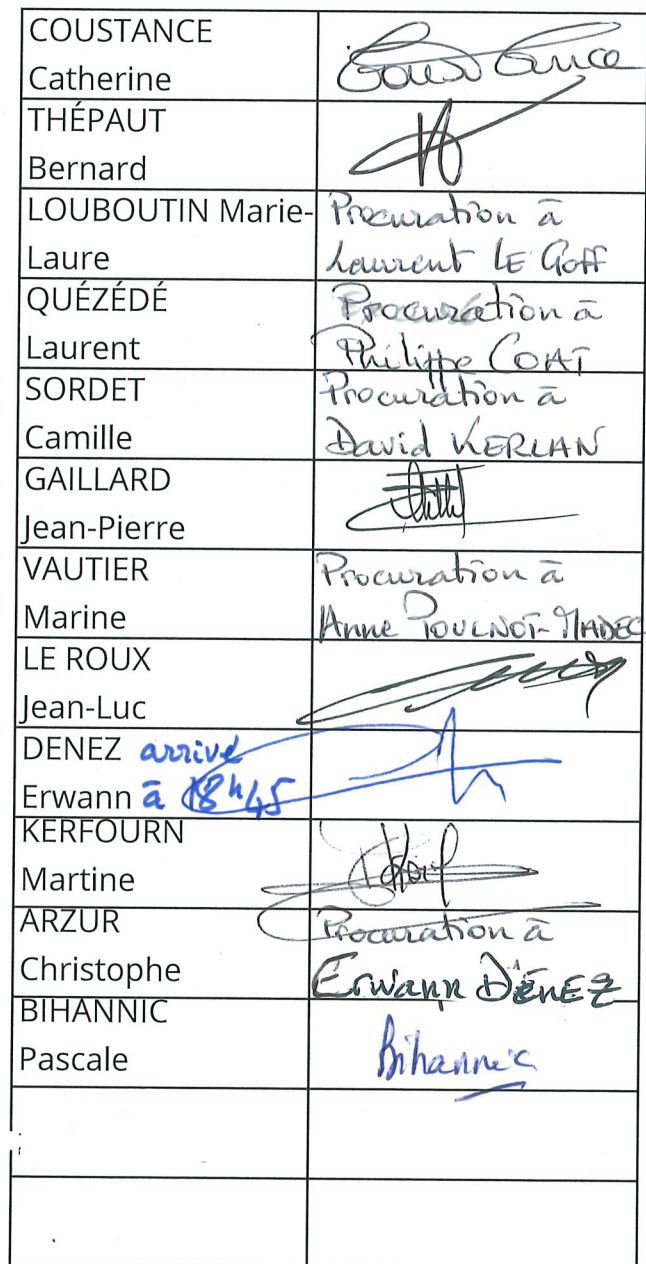 COUSTANCE
Catherine
Coustance
THÉPAUT
Bernard
LOUBOUTIN Marie-
Laure
Procuration à
Laurent LE Goff
QUÉZÉDÉ
Laurent
Procuration à
Philippe COAT
SORDET
Camille
Procuration à
David KERLAN
GAILLARD
Jean-Pierre
VAUTIER
Marine
Procuration à
Anne POULNOT-MADEC
LE ROUX
Jean-Luc
DENEZ arrivé
Erwann à 18h45
KERFOURN
Martine
ARZUR
Christophe
Procuration à
Erwann DENEZ
BIHANNIC
Pascale
Bihannic